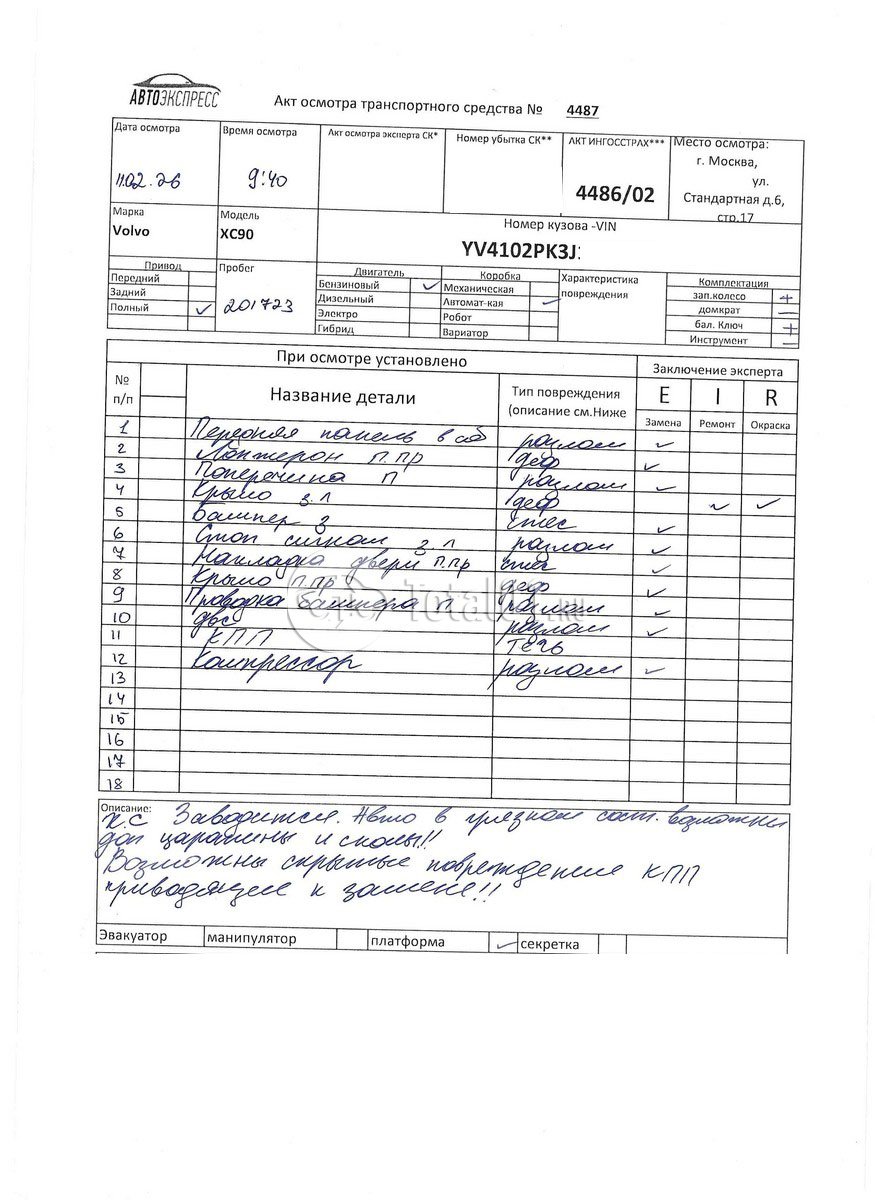 АВТОЭКСПРЕСС
Акт осмотра транспортного средства № 4487
Дата осмотра Время осмотра Акт осмотра эксперта СК* Номер убытка СК** АКТ ИНГОССТРАХ*** Место осмотра:
г. Москва,
11.02.26 9:40 4486/02 ул.
Стандартная д.6,
стр.17
Марка Модель Номер кузова -VIN
Volvo XC90 YV4102PK3J
Привод Пробег Двигатель Коробка Характеристика повреждения Комплектация
Передний Бензиновый ✓ Механическая зап.колесо +
Задний 201723 Дизельный Автомат-кая ✓ домкрат —
Полный ✓ Электро Робот бал. Ключ +
Гибрид Вариатор Инструмент —
При осмотре установлено Заключение эксперта
№ п/п Название детали Тип повреждения (описание см.Ниже E I R
Замена Ремонт Окраска
1 Передняя панель в сб разлом ✓
2 Лонжерон п.пр деф ✓
3 Поперечина П разлом ✓
4 Крыло з.л деф ~ ✓
5 Бампер З ✓
6 Стоп сигнал з л разлом ✓
7 Накладка двери п.пр ✓
8 Крыло п.пр деф ✓
9 Проводка бампера П разлом ✓
10 двс разлом ✓
11 КПП течь
12 Компрессор разлом ✓
13
14
15
16
17
18
Total01.RU
Описание:
х.с Заводится. Авто в грязном сост. возможны
доп царапины и сколы!!
Возможны скрытые повреждения КПП
приводящие к замене!!
Эвакуатор манипулятор платформа ✓ секретка